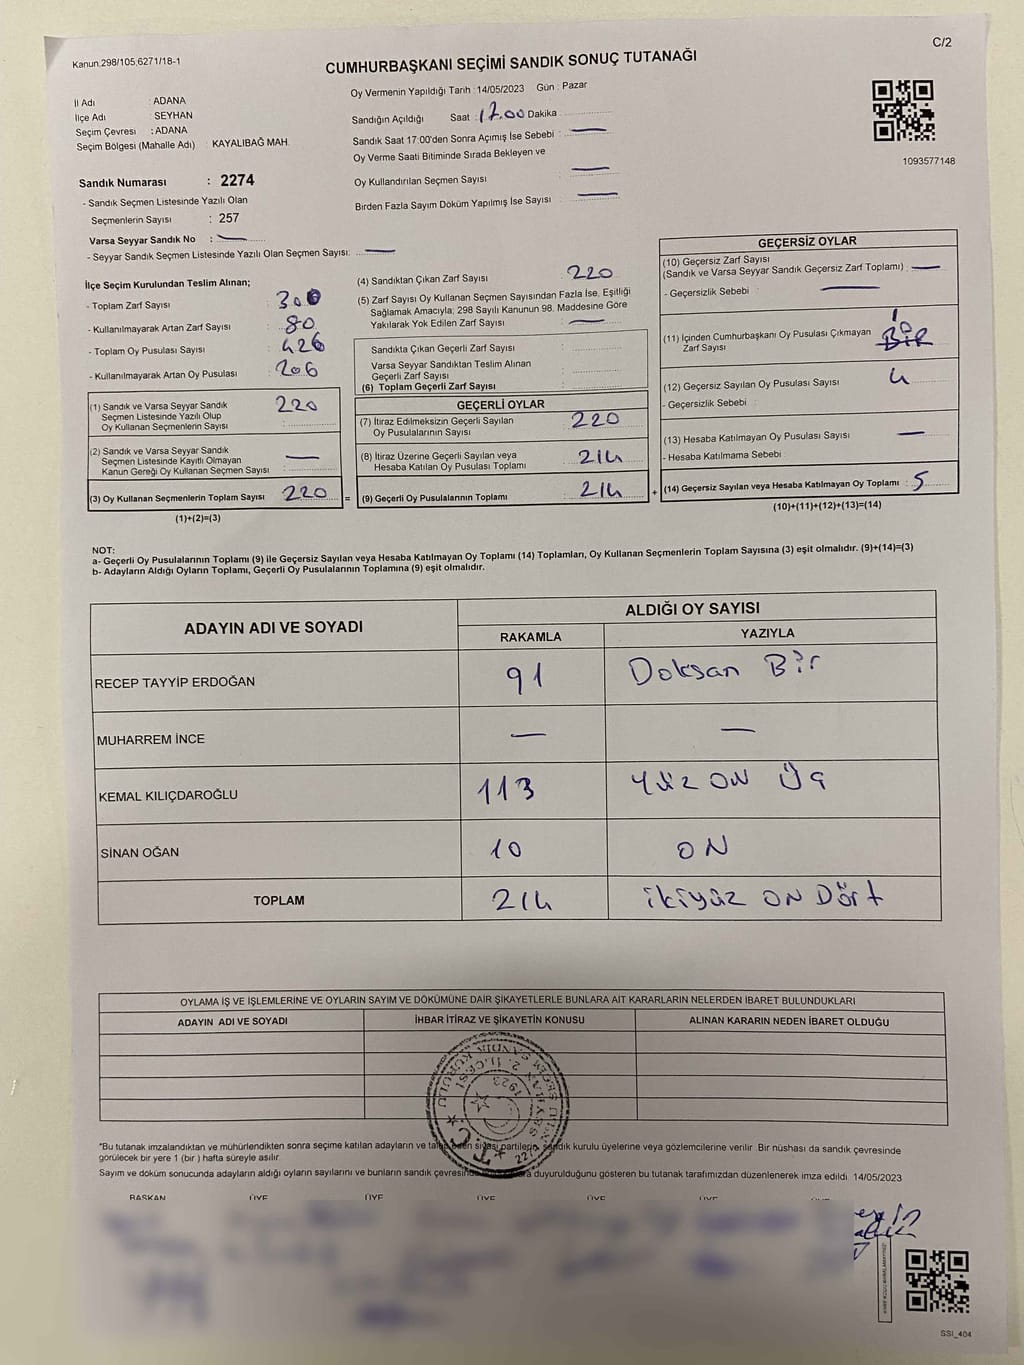 C/2
Kanun.298/105,6271/18-1
CUMHURBAŞKANI SEÇİMİ SANDIK SONUÇ TUTANAĞI
İl Adı : ADANA
İlçe Adı : SEYHAN
Seçim Çevresi : ADANA
Seçim Bölgesi (Mahalle Adı) : KAYALIBAĞ MAH.
Sandık Numarası : 2274
- Sandık Seçmen Listesinde Yazılı Olan
Seçmenlerin Sayısı : 257
Varsa Seyyar Sandık No : —
- Seyyar Sandık Seçmen Listesinde Yazılı Olan Seçmen Sayısı: —
Oy Vermenin Yapıldığı Tarih : 14/05/2023 Gün : Pazar
Sandığın Açıldığı Saat : 17.00 Dakika
Sandık Saat 17:00'den Sonra Açımış İse Sebebi : —
Oy Verme Saati Bitiminde Sırada Bekleyen ve
Oy Kullandırılan Seçmen Sayısı —
Birden Fazla Sayım Döküm Yapılmış İse Sayısı : —
1093577148
İlçe Seçim Kurulundan Teslim Alınan;
- Toplam Zarf Sayısı : 300
- Kullanılmayarak Artan Zarf Sayısı : 80
- Toplam Oy Pusulası Sayısı : 426
- Kullanılmayarak Artan Oy Pusulası : 206
(1) Sandık ve Varsa Seyyar Sandık
Seçmen Listesinde Yazılı Olup
Oy Kullanan Seçmenlerin Sayısı : 220
(2) Sandık ve Varsa Seyyar Sandık
Seçmen Listesinde Kayıtlı Olmayan
Kanun Gereği Oy Kullanan Seçmen Sayısı : —
(3) Oy Kullanan Seçmenlerin Toplam Sayısı : 220 =
(1)+(2)=(3)
(4) Sandıktan Çıkan Zarf Sayısı : 220
(5) Zarf Sayısı Oy Kullanan Seçmen Sayısından Fazla İse, Eşitliği
Sağlamak Amacıyla; 298 Sayılı Kanunun 98. Maddesine Göre
Yakılarak Yok Edilen Zarf Sayısı : —
Sandıkta Çıkan Geçerli Zarf Sayısı :
Varsa Seyyar Sandıktan Teslim Alınan
Geçerli Zarf Sayısı :
(6) Toplam Geçerli Zarf Sayısı :
GEÇERLİ OYLAR
(7) İtiraz Edilmeksizin Geçerli Sayılan
Oy Pusulalarının Sayısı : 220
(8) İtiraz Üzerine Geçerli Sayılan veya
Hesaba Katılan Oy Pusulası Toplamı : 214
(9) Geçerli Oy Pusulalarının Toplamı : 214 +
GEÇERSİZ OYLAR
(10) Geçersiz Zarf Sayısı
(Sandık ve Varsa Seyyar Sandık Geçersiz Zarf Toplamı) : —
- Geçersizlik Sebebi : —
(11) İçinden Cumhurbaşkanı Oy Pusulası Çıkmayan
Zarf Sayısı : BİR
(12) Geçersiz Sayılan Oy Pusulası Sayısı : 4
- Geçersizlik Sebebi :
(13) Hesaba Katılmayan Oy Pusulası Sayısı : —
- Hesaba Katılmama Sebebi :
(14) Geçersiz Sayılan veya Hesaba Katılmayan Oy Toplamı : 5
(10)+(11)+(12)+(13)=(14)
NOT:
a- Geçerli Oy Pusulalarının Toplamı (9) ile Geçersiz Sayılan veya Hesaba Katılmayan Oy Toplamı (14) Toplamları, Oy Kullanan Seçmenlerin Toplam Sayısına (3) eşit olmalıdır. (9)+(14)=(3)
b- Adayların Aldığı Oyların Toplamı, Geçerli Oy Pusulalarının Toplamına (9) eşit olmalıdır.
ADAYIN ADI VE SOYADI
ALDIĞI OY SAYISI
RAKAMLA YAZIYLA
RECEP TAYYİP ERDOĞAN 91 Doksan Bir
MUHARREM İNCE — —
KEMAL KILIÇDAROĞLU 113 YÜZ ON Üç
SİNAN OĞAN 10 ON
TOPLAM 214 ikiyüz ON Dört
OYLAMA İŞ VE İŞLEMLERİNE VE OYLARIN SAYIM VE DÖKÜMÜNE DAİR ŞİKAYETLERLE BUNLARA AİT KARARLARIN NELERDEN İBARET BULUNDUKLARI
ADAYIN ADI VE SOYADI İHBAR İTİRAZ VE ŞİKAYETİN KONUSU ALINAN KARARIN NEDEN İBARET OLDUĞU
T.C.
1923
*Bu tutanak imzalandıktan ve mühürlendikten sonra seçime katılan adayların ve siyasi partilerin sandık kurulu üyelerine veya gözlemcilerine verilir. Bir nüshası da sandık çevresinde
görülecek bir yere 1 (bir ) hafta süreyle asılır.
Sayım ve döküm sonucunda adayların aldığı oyların sayılarını ve bunların sandık çevresinde duyurulduğunu gösteren bu tutanak tarafımızdan düzenlenerek imza edildi. 14/05/2023
BAŞKAN ÜYE ÜYE ÜYE ÜYE ÜYE
SSI_404